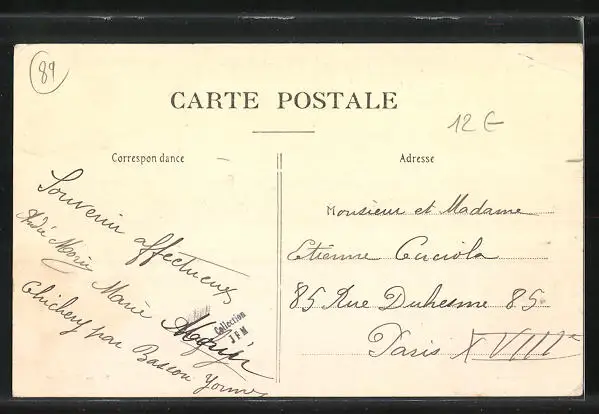 89
CARTE POSTALE
12 €
Correspondance
Adresse
Souvenir affectueux
André Marie Marie
Chichery par Bassou Yonne
Collection
JFM
Monsieur et Madame
Etienne
85 Rue Duhesme 85
Paris XVIIIe